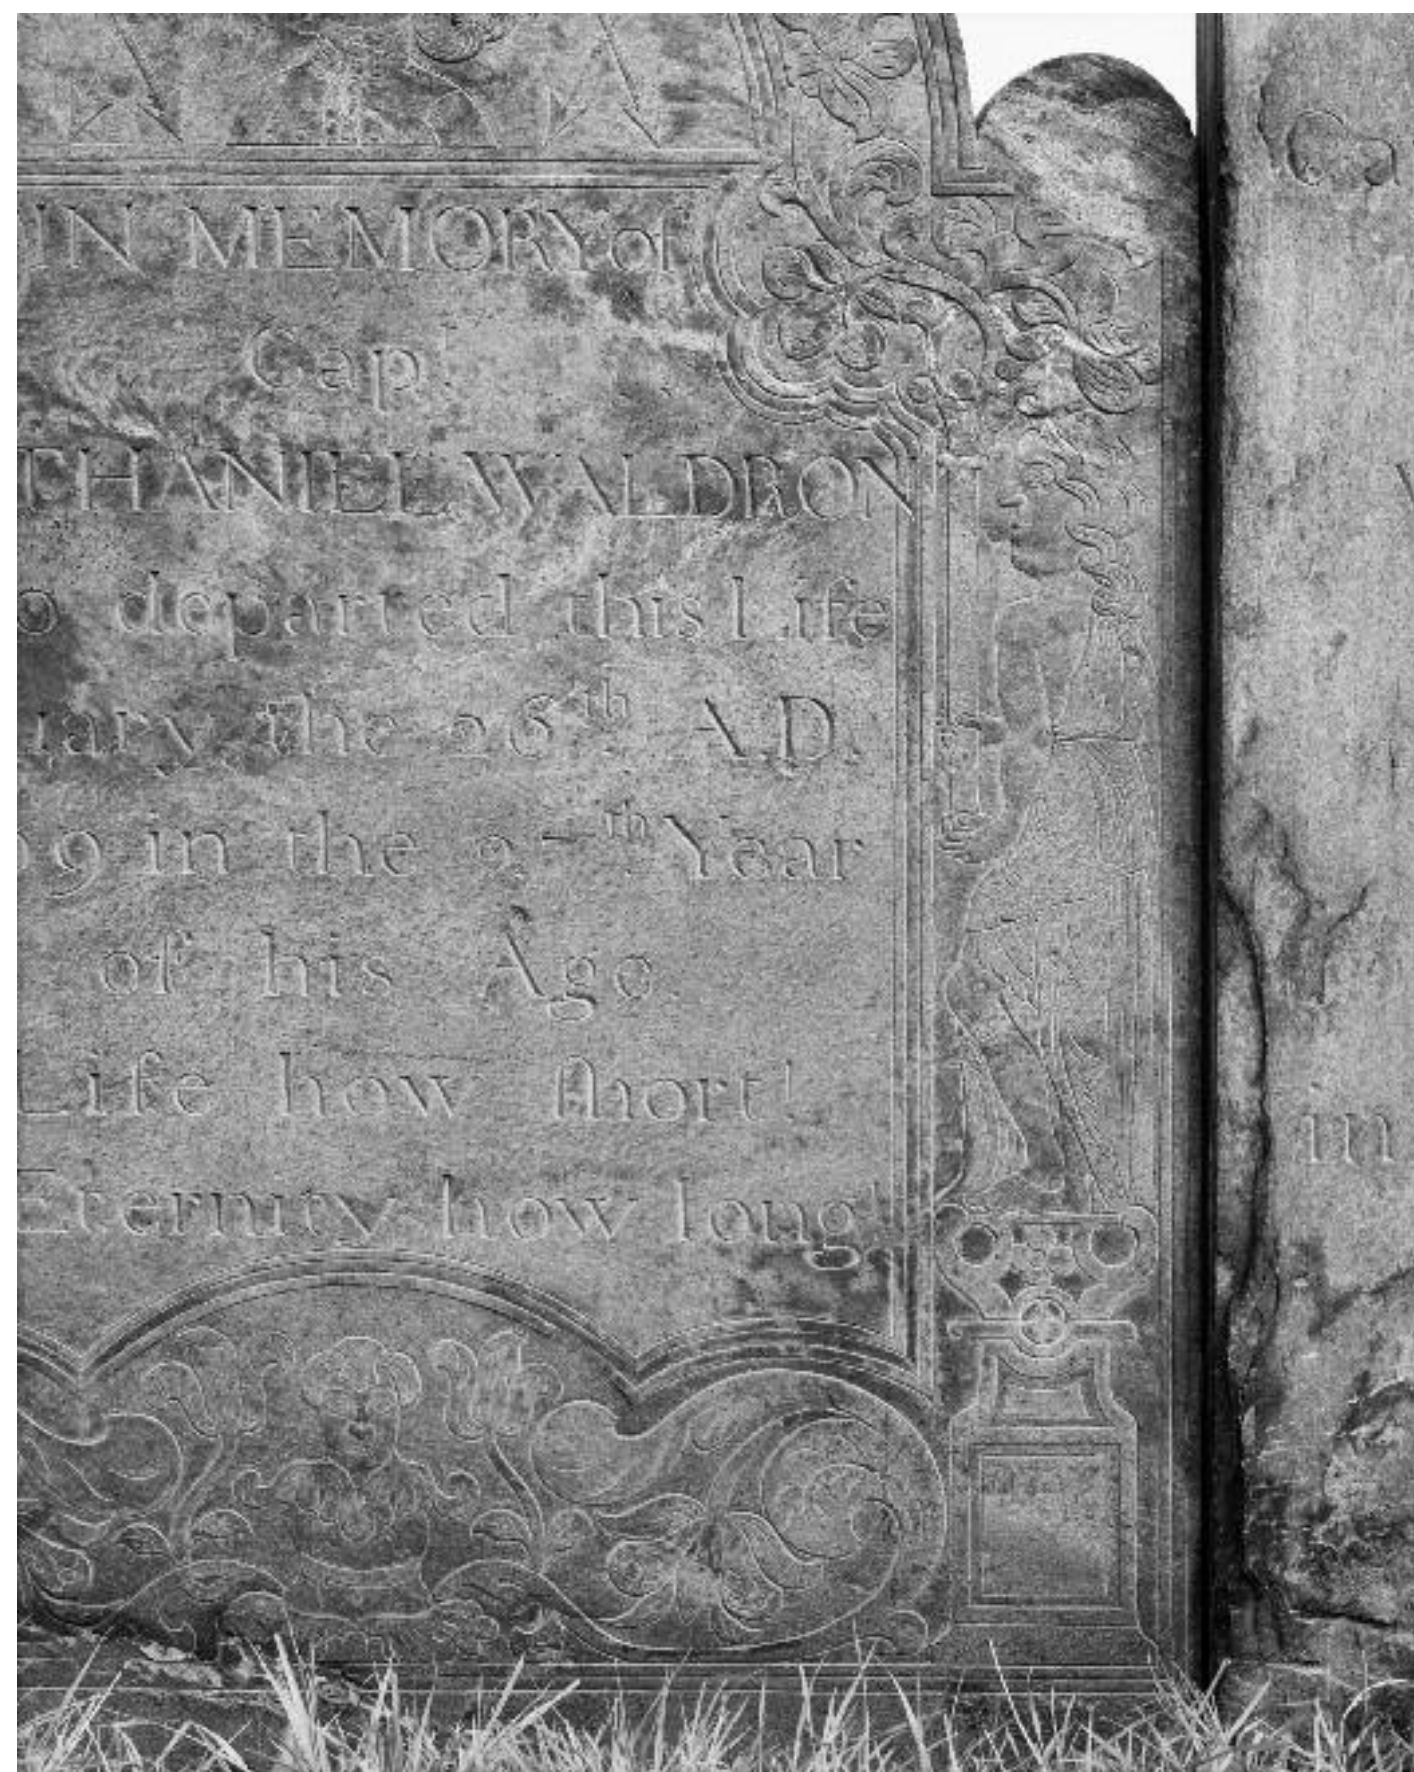 IN MEMORY of
Capt
THANIEL WALDRON
o departed this Life
uary the 26th A.D.
9 in the 27th Year
of his Age.
Life how ſhort!
Eternity how long!
Ca
in